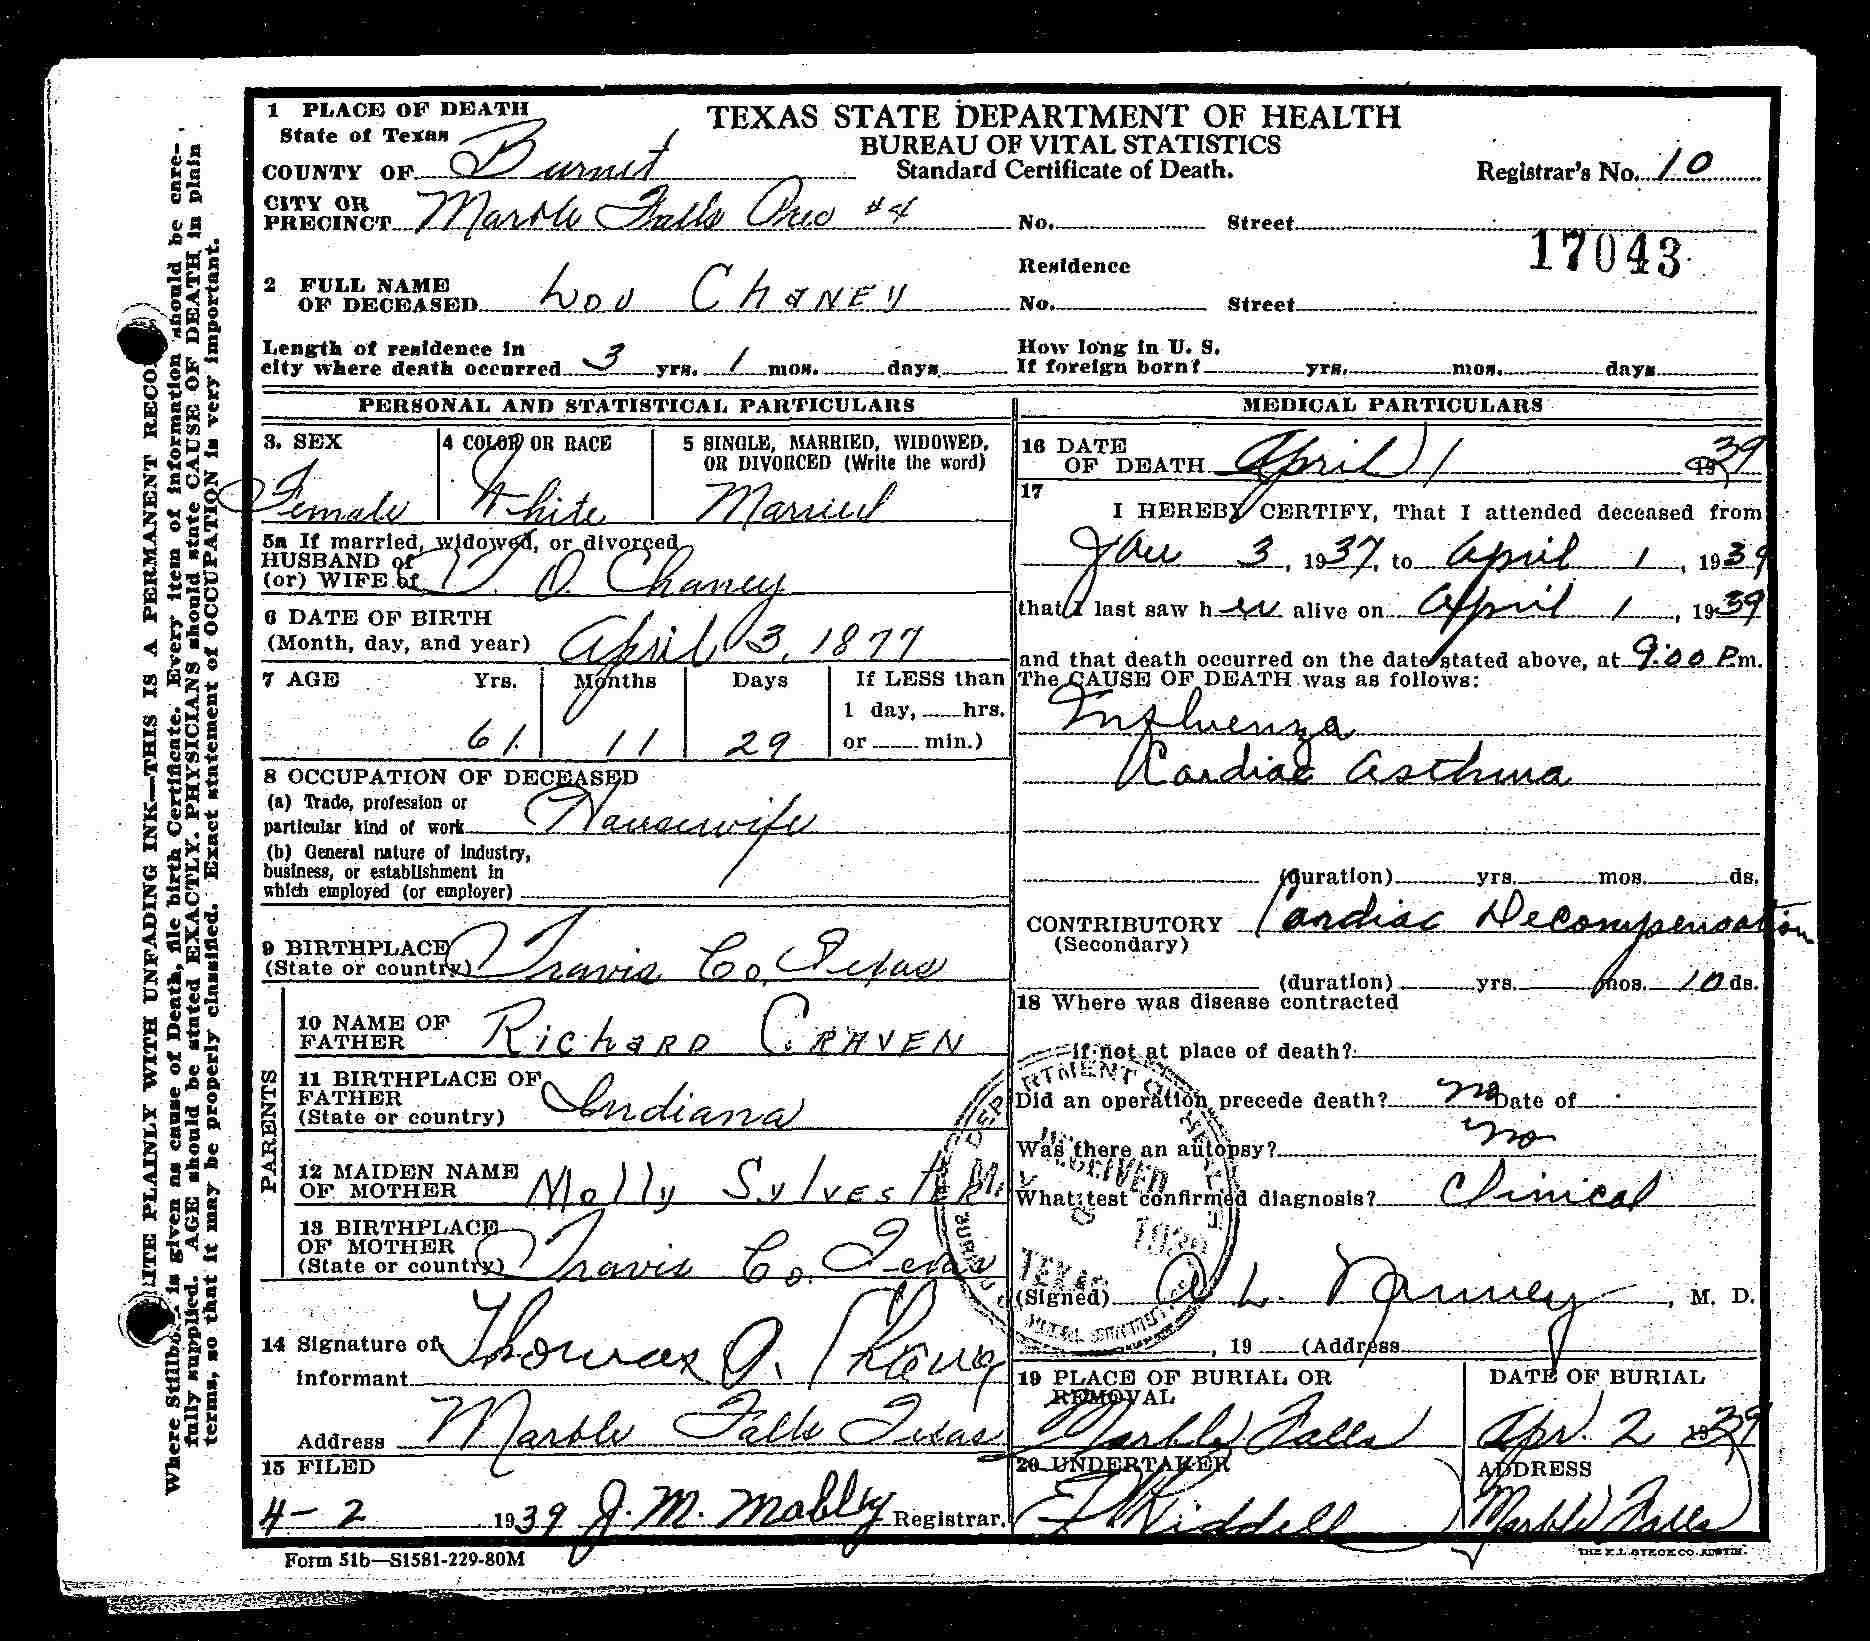 1 PLACE OF DEATH
State of Texas
COUNTY OF Burnet
CITY OR
PRECINCT Marble Falls Prec #4
TEXAS STATE DEPARTMENT OF HEALTH
BUREAU OF VITAL STATISTICS
Standard Certificate of Death.
Registrar's No. 10
No. Street
17043
2 FULL NAME
OF DECEASED Lou Chaney
Residence
No. Street
Length of residence in
city where death occurred 3 yrs. 1 mos. days
How long in U. S.
If foreign born? yrs. mos. days
PERSONAL AND STATISTICAL PARTICULARS
3. SEX
Female
4 COLOR OR RACE
White
5 SINGLE, MARRIED, WIDOWED,
OR DIVORCED (Write the word)
Married
5a If married, widowed, or divorced
HUSBAND of
(or) WIFE of T. O. Chaney
6 DATE OF BIRTH
(Month, day, and year) April 3, 1877
7 AGE Yrs. Months Days If LESS than
1 day, hrs.
61 11 29 or min.)
8 OCCUPATION OF DECEASED
(a) Trade, profession or
particular kind of work Housewife
(b) General nature of industry,
business, or establishment in
which employed (or employer)
9 BIRTHPLACE
(State or country) Travis Co, Texas
PARENTS
10 NAME OF
FATHER Richard Craven
11 BIRTHPLACE OF
FATHER
(State or country) Indiana
12 MAIDEN NAME
OF MOTHER Molly Sylvester
13 BIRTHPLACE
OF MOTHER
(State or country) Travis Co. Texas
14 Signature of
Informant Thomas O. Chaney
Address Marble Falls Texas
15 FILED
4-2 1939 J. M. Mobley Registrar.
MEDICAL PARTICULARS
16 DATE
OF DEATH April 1 1939
17
I HEREBY CERTIFY, That I attended deceased from
Jan 3, 1937, to April 1, 1939
that I last saw her alive on April 1, 1939
and that death occurred on the date stated above, at 9:00 P.m.
The CAUSE OF DEATH was as follows:
Influenza
Cardiac Asthma
(duration) yrs. mos. ds.
CONTRIBUTORY Cardiac Decompensation
(Secondary)
(duration) yrs. mos. 10 ds.
18 Where was disease contracted
if not at place of death?
Did an operation precede death? no Date of
Was there an autopsy? no
What test confirmed diagnosis? Clinical
(Signed) A L , M. D.
, 19 (Address
19 PLACE OF BURIAL OR
REMOVAL
Marble Falls
DATE OF BURIAL
Apr. 2 1939
20 UNDERTAKER
Riddell
ADDRESS
Marble Falls
RECEIVED
1939
TEXAS
Form 51b—S1581-229-80M
THE E. L. STECK CO. AUSTIN.
ITE PLAINLY WITH UNFADING INK—THIS IS A PERMANENT RECO
Where is given as cause of Death, file birth Certificate. Every item of information should be care-
fully supplied. AGE should be stated EXACTLY. PHYSICIANS should state CAUSE OF DEATH in plain
terms, so that it may be properly classified. Exact statement of OCCUPATION is very important.